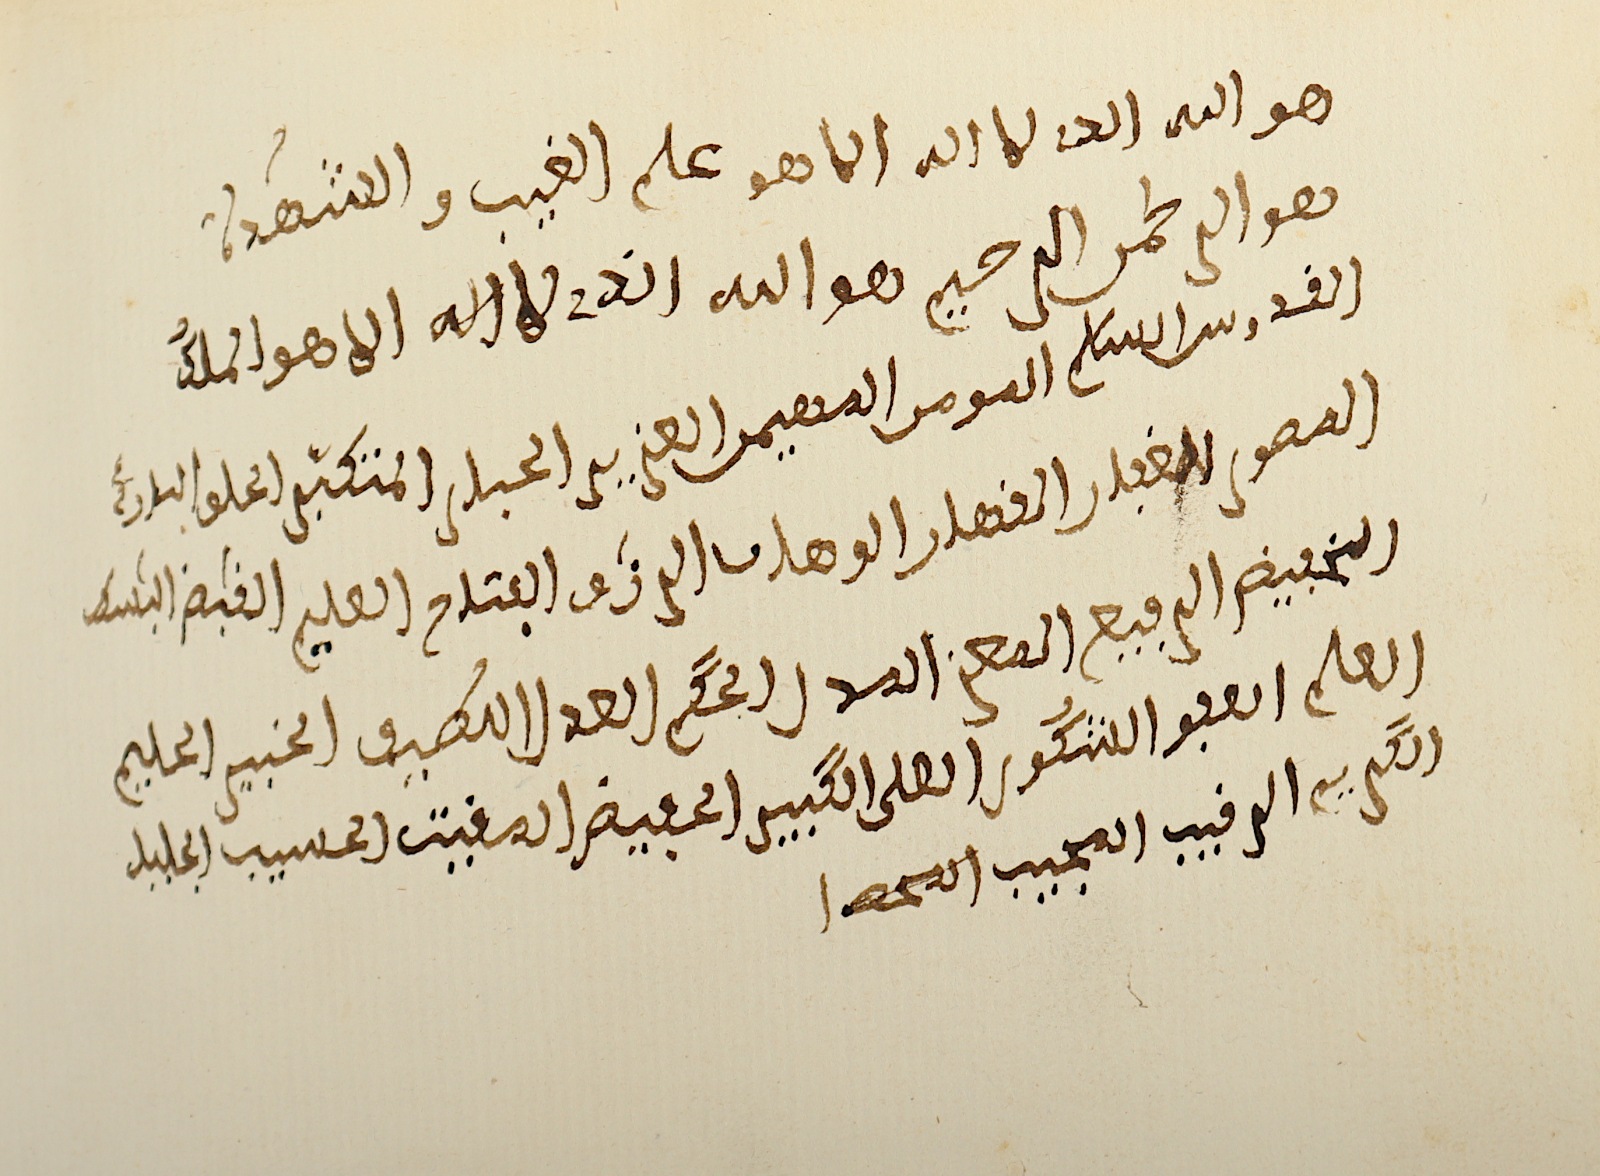 هو الله الذى لا اله الا هو علم الغيب و الشهدة
هو الرحمن الرحيم هو الله الذى لا اله الا هو الملك
القدوس السلم المومن المهيمن العزيز الجبار المتكبر الخلق البارئ
المصور الغفار القهار الوهاب الرزق الفتاح العليم القبض البسط
الخفيض الرفيع المعز المدل الحكم العدل اللطيف الخبير الحليم
العلم العفو الشكور العلى الكبير الحفيض المقيت الحسيب الجليل
الكريم الرقيب المجيب